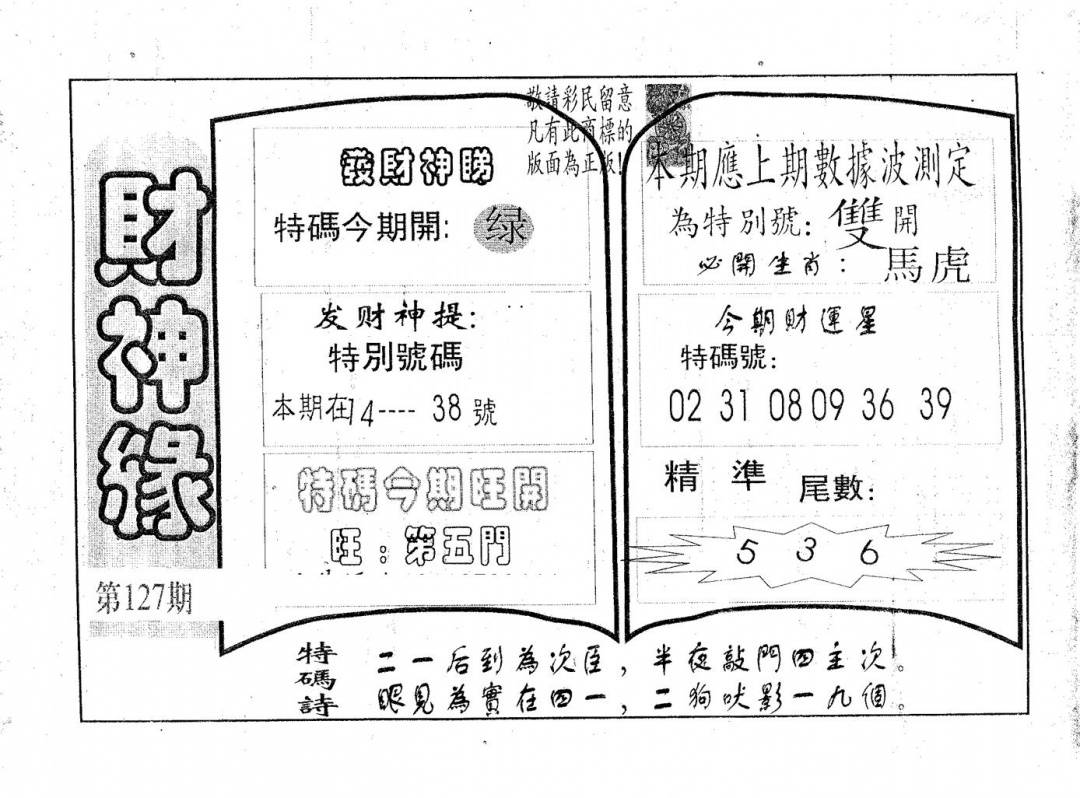 財神緣
第127期
敬請彩民留意
凡有此商標的
版面為正版!
發財神睇
特碼今期開: 绿
发财神提:
特別號碼
本期在14---- 38 號
特碼今期旺開
旺：第五門
本期應上期數據波測定
為特別號: 雙 開
必開生肖： 馬虎
今期財運星
特碼號:
02 31 08 09 36 39
精 準 尾數:
5 3 6
特碼詩
二一后到為次臣，半夜敲門四主次。
眼見為實在四一，二狗吠影一九個。